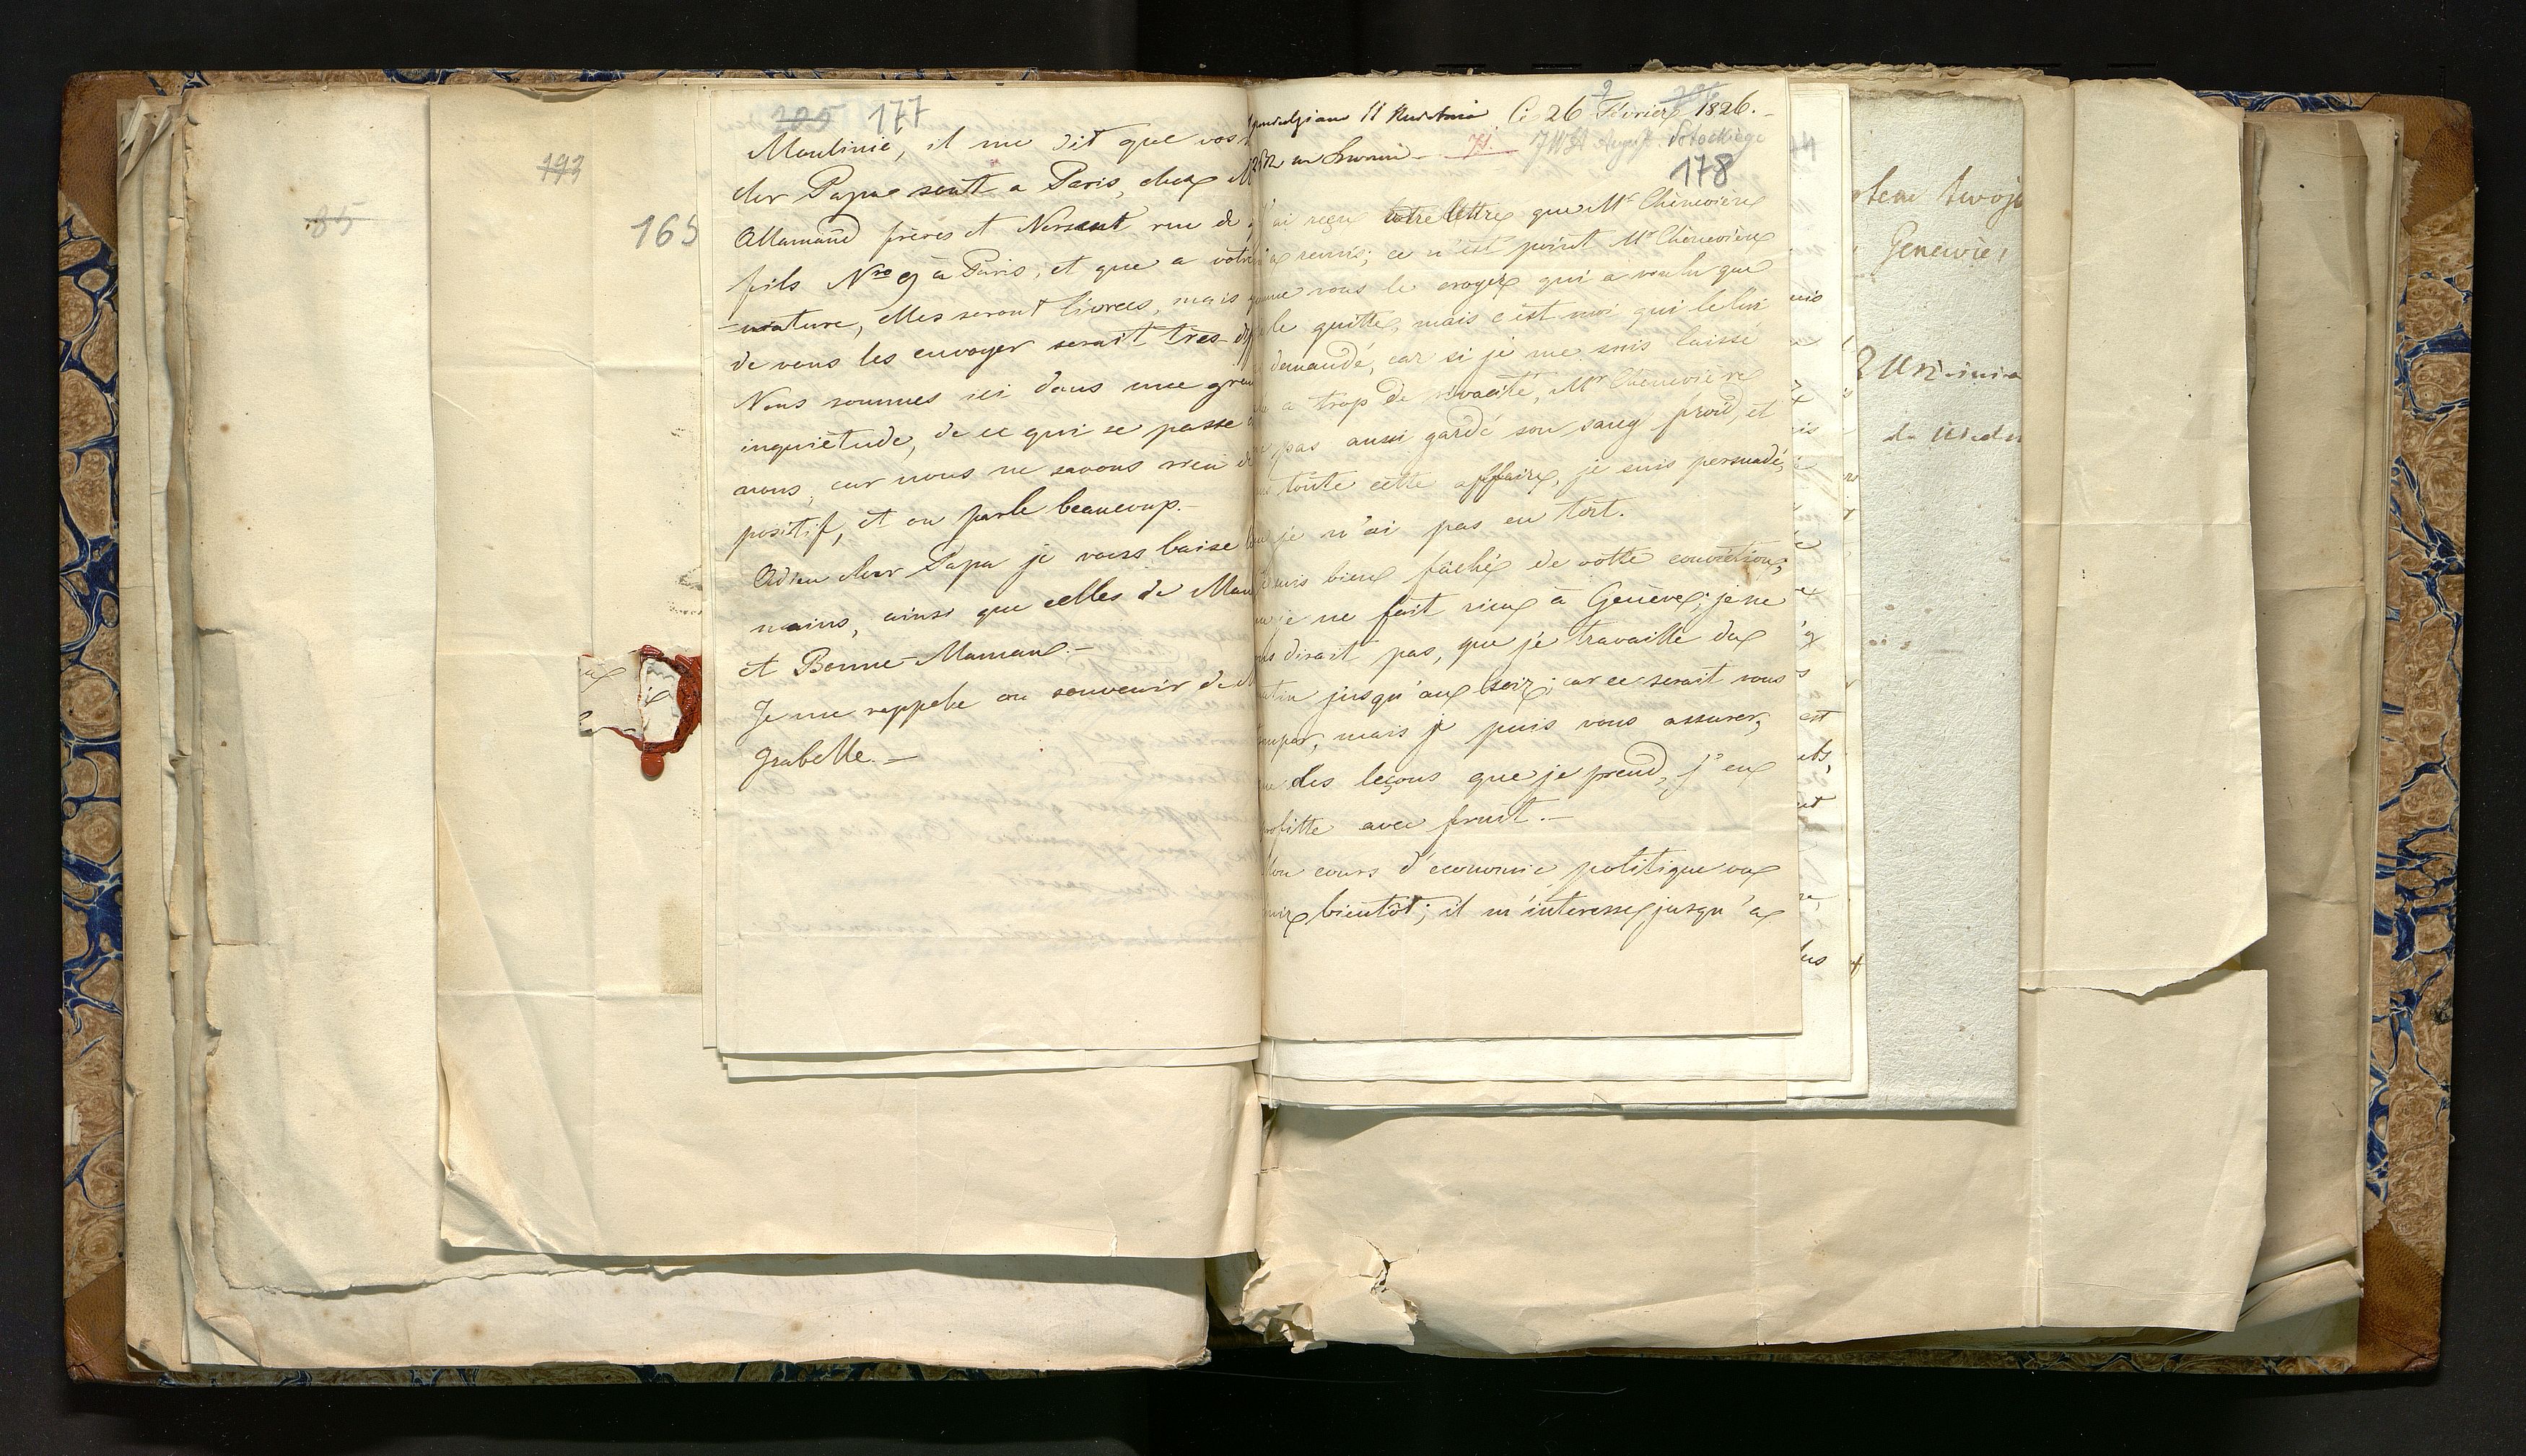 85
193
165
205 177
Moulinié, il me dit que vos
cher Papa sont a Paris, chez M
Allamand frères et Nersent rue de
fils Nro 9 à Paris, et que a votre
-niature, elles seront livrées, mais
de vous les envoyer serait très
Nous sommes ici dans une gran
inquiétude, de ce qui se passe
nous, car nous ne savons rien de
positif, et on parle beaucoup.-
Adieu cher Papa je vous baise les
mains, ainsi que celles de Mam
et Bonne-Maman.-
Je me rappelle au souvenir de M
Isabelle.-
11 Ce 26 Février 1826.-
178
J'ai reçu votre lettre que Mr Chènevière
a remis; ce n'est point Mr Chènevière
comme vous le croyez qui a voulu que
le quitte, mais c'est moi qui le lui
demandé, car si je me suis laissé
a trop de vivacité, Mr Chènevière
pas aussi gardé son sang froid, et
toute cette affaire, je suis persuadé,
je n'ai pas eu tort.
suis bien fâché de votre conviction,
je ne fait rien à Genève; je ne
dirait pas, que je travaille du
matin jusqu'au soir; car ce serait vous
tromper, mais je puis vous assurer,
des leçons que je prend, j'en
profitte avec fruit.-
Mon cours d'economie politique va
bientôt; il m'interesse jusqu'a
Genewie